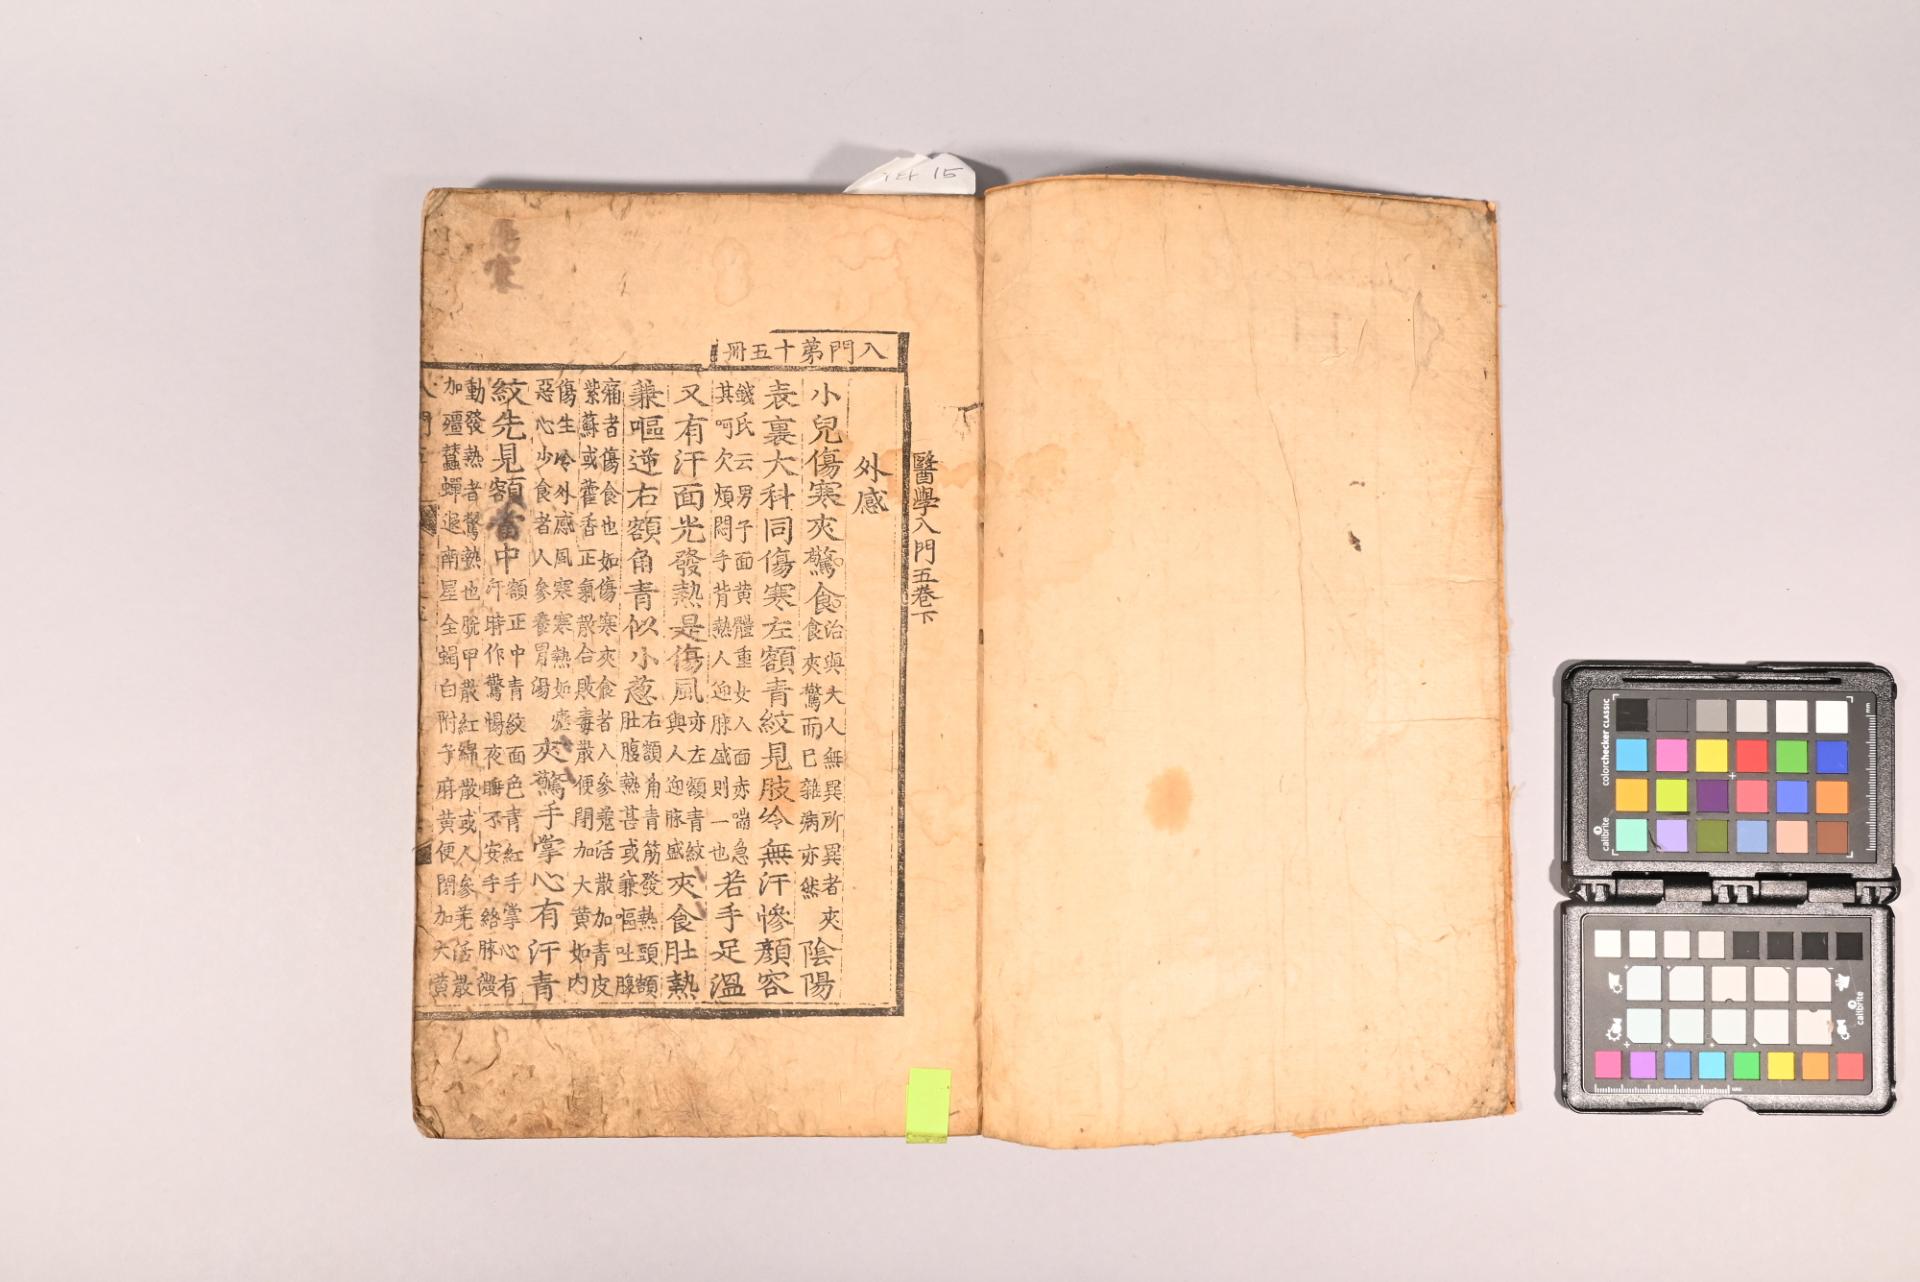 醫學入門五卷下
入門第十五冊
外感
小兒傷寒夾驚食治與大人無異所異者夾食夾驚而已雜病亦然陰陽
表裏大科同傷寒左額青紋見肢冷無汗慘顏容
錢氏云男子面黃體重女人面赤喘急其呵欠煩悶手背熱人迎脉盛則一也若手足溫
又有汗面光發熱是傷風亦左額青紋與人迎脉盛夾食肚熱
兼嘔逆右額角青似小葱右額角青筋發熱頭額肚腹熱甚或兼嘔吐腹
痛者傷食也如傷寒夾食者人參羗活散加青皮紫蘇或藿香正氣散合敗毒散便閉加大黃如內
傷生冷外感風寒寒熱如瘧惡心少食者人參養胃湯夾驚手掌心有汗青
紋先見額當中額正中青紋面色青紅手掌心有汗時作驚惕夜睡不安手絡脉微
動發熱者驚熱也脫甲散紅綿散或人參羌活散加殭蠶蟬退南星全蝎白附子麻黃便閉加大黃
15
colorchecker CLASSIC
calibrite
mm
calibrite